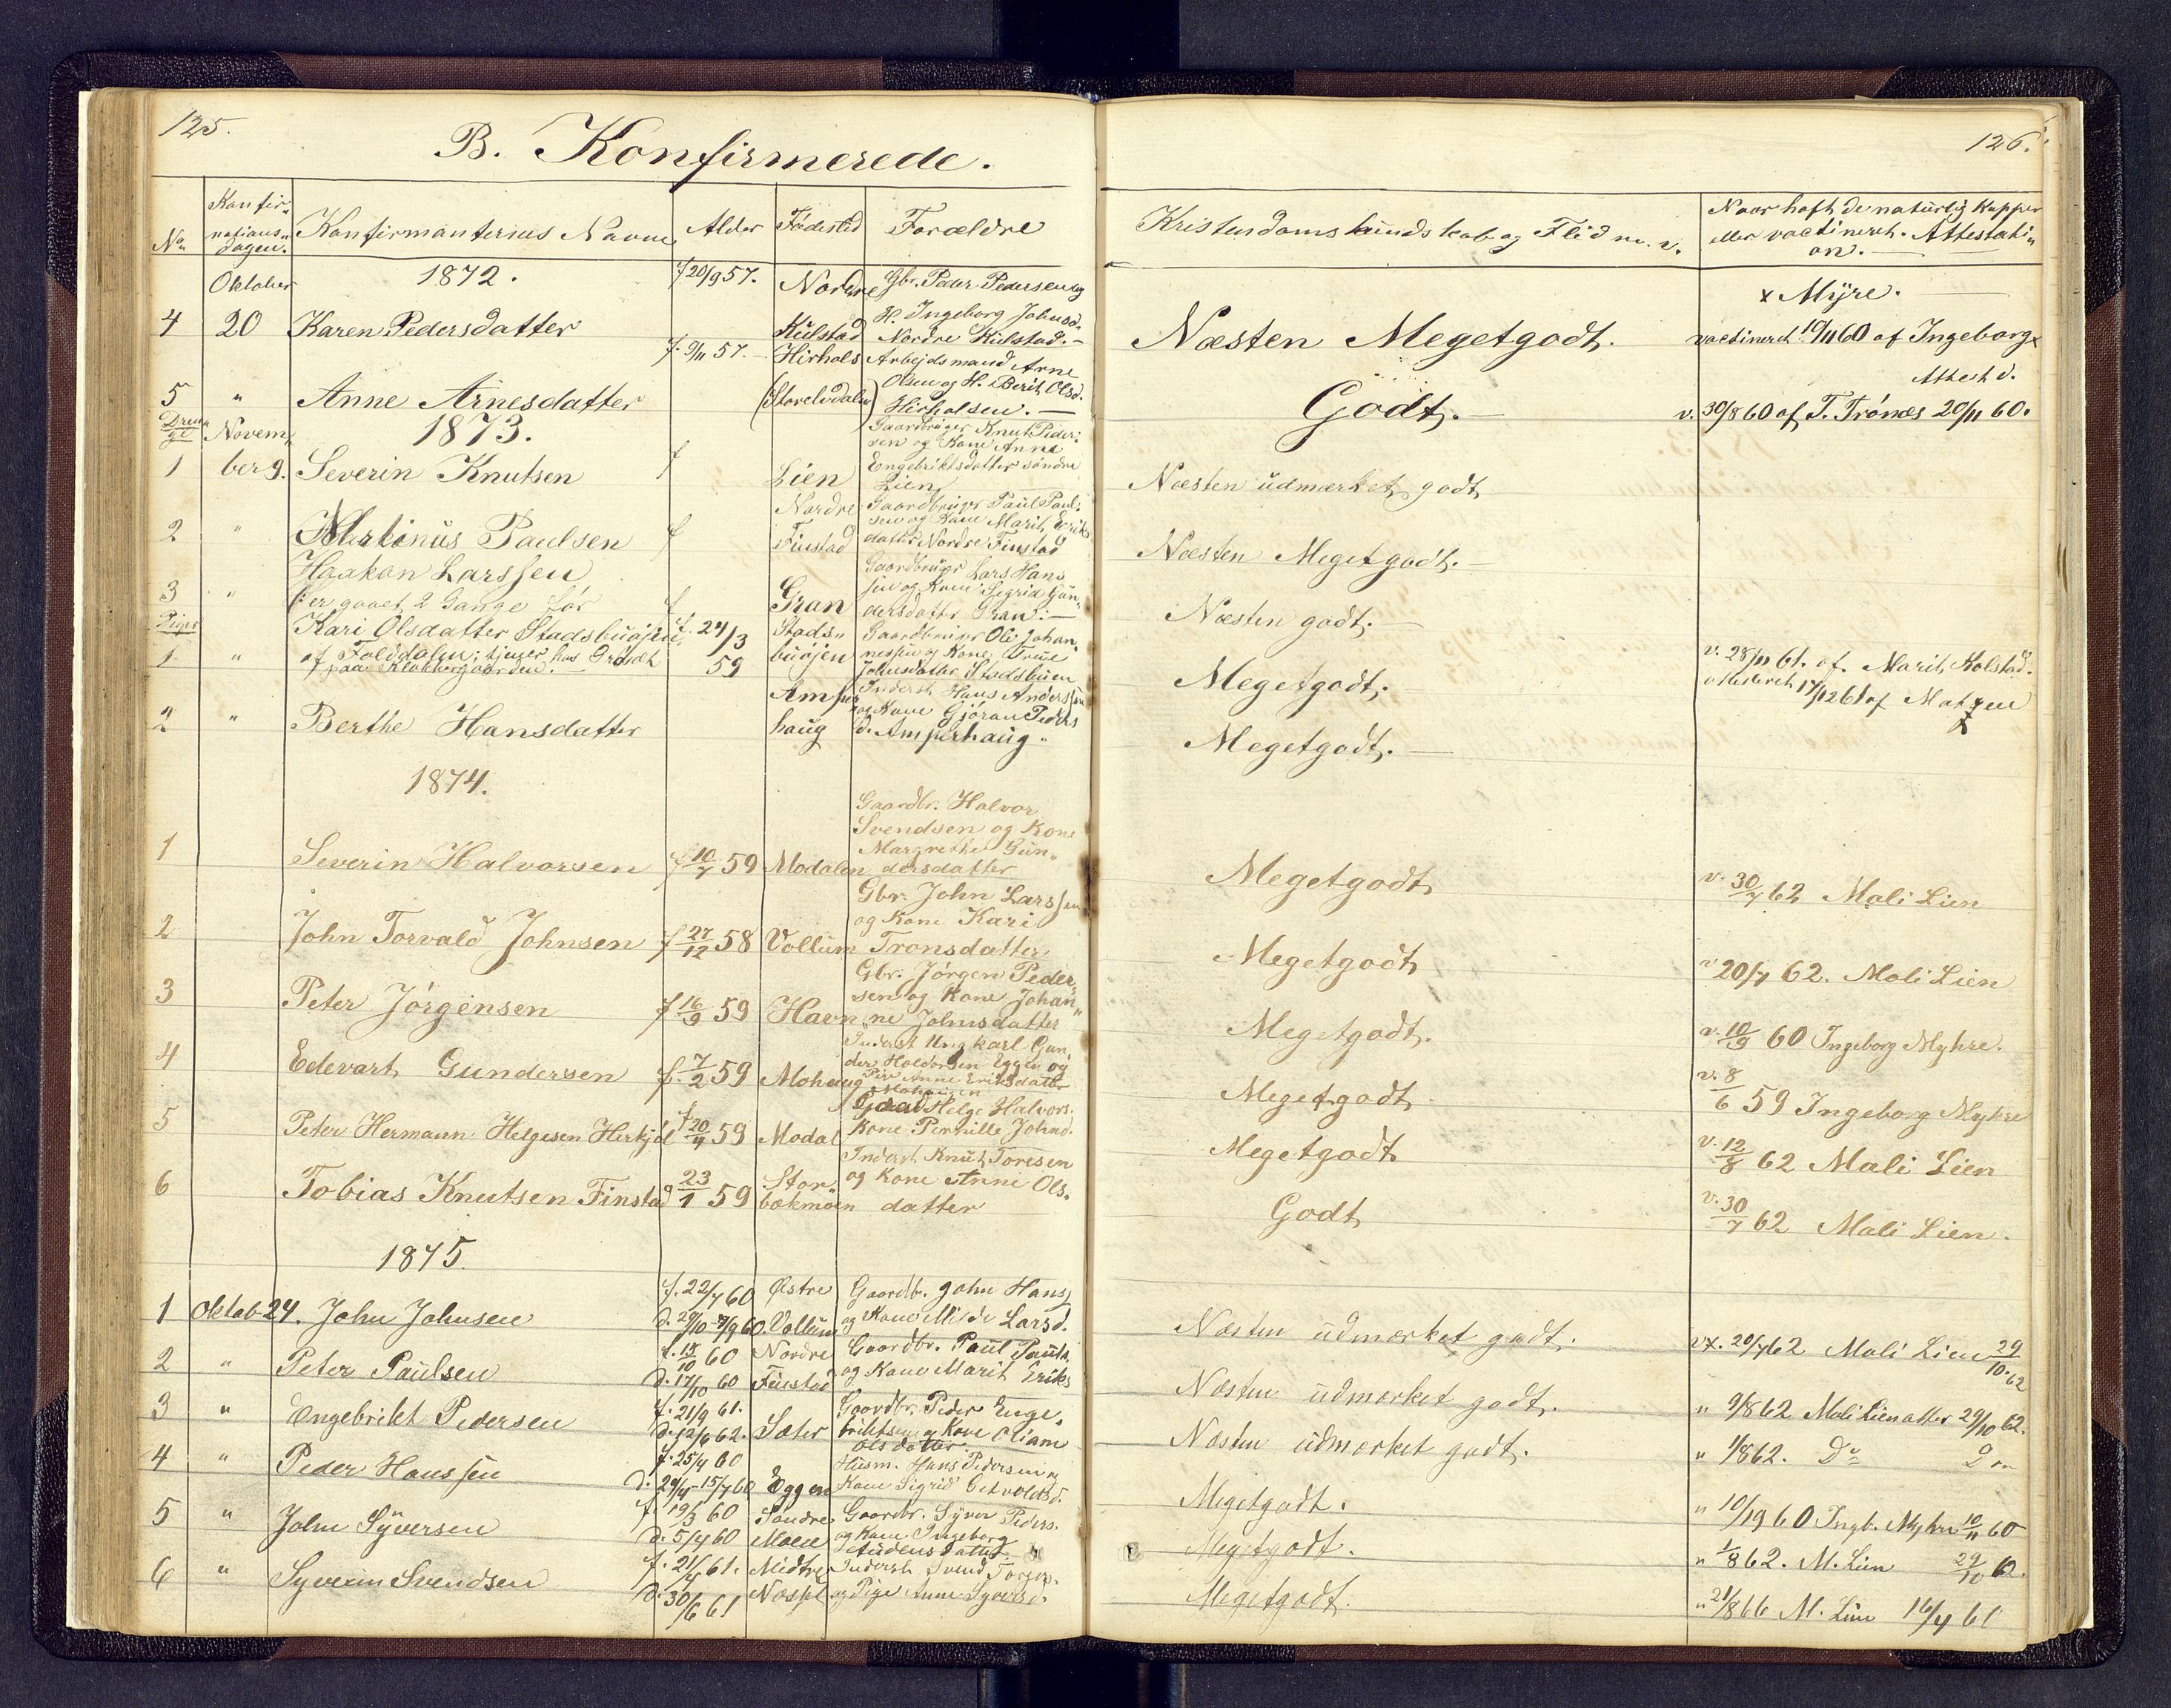 125.
B. Konfirmerede.
126.
No Konfir- mations- dagen. Konfirmanternes Navne Alder Fødested Forældre Kristendomskundskab og Flid m. v. Naar haft de naturlig Kopper
eller vaccineret. Attestati-
on.
Oktober 1872. f 20/9 57. Nordre Gbr. Peder Pedersen og
x Myre.
H. Ingeborg Johnsd.
4 20 Karen Pedersdatter Kulstad Nordre Kulstad. Næsten Megetgodt. vaccineret 19/11 60 af Ingeborg x
f. 9/11 57. Hirhols Arbejdsmand Arne
Attest d.
5 " Anne Arnesdatter (Storelvdalen) Olsen og H. Berit Olsd.
Hirholsen. Godt. v. 30/8 60 af T. Trónæs 20/11 60.
Drenge Novem- 1873. Gaardbruger Knut Peder-
sen og Kone Anne
1 ber 9. Severin Knutsen f Lien Engebriktsdatter søndre
Lien Næsten udmærket godt
Nordre Gaardbruger Paul Paul-
sen og Kone Marit Eriks
2 " Martinus Paulsen f Finstad datter Nordre Finstad Næsten Megetgodt.
Haakon Larssen Gaardbruger Lars Hans
3 " (er gaaet 2 Gange før f Gran sen og Kone Sigrid Gun-
dersdatter Gran. Næsten godt.
Piger Kari Olsdatter Stadsbuøjen f. 24/3 Stads- Gaardbruger Ole Johan-
1 " af Folddalen; tjener hos 59 buøjen nessen og Kone
paa Klokkergaarden. Johnsdatter Stadsbuen Megetgodt. v. 28/11 61. af Marit Kolstad.
attesteret 17/12 61 af Matzen
Amper Inderst Hans Anderssen
og Kone Gjøran Peders
2 " Berthe Hansdatter haug d. Amperhaug. Megetgodt.
1874.
Gaardbr. Halvor
Svendsen og Kone
Margrethe Gun-
1 Severin Halvorsen f 10/7 59 Modalen dersdatter Megetgodt v. 30/7 62 Mali Lien
Gbr. John Larssen
og Kone Kari
2 John Torvald Johnsen f 27/12 58 Vollum Tronsdatter Megetgodt v 20/7 62. Mali Lien
Gbr. Jørgen Peder-
sen og Kone Johan-
3 Peter Jørgensen f 16/9 59 Havn ne Johnsdatter Megetgodt. v. 10/9 60 Ingeborg Myhre.
Inderst Ungkarl Gun-
der Haldorsen Eggen og
4 Edevart Gundersen f. 7/2 59 Mohaug Pige Anne Eriksdatter
Mohaugen Megetgodt v. 8/6 59 Ingeborg Myhre
Helge Halvors.
5 Peter Hermann Helgesen Herkjøl f 20/4 59 Modal Kone Pernille Johnd. Megetgodt v. 12/8 62 Mali Lien
Inderst Knut Toresen
6 Tobias Knutsen Finstad 23/1 59 Stor- og Kone Anne Ols-
bækmoen datter Godt v. 30/7 62 Mali Lien.
1875.
1 Oktob 24. John Johnsen f. 22/7 60 Østre Gaardb. John Hans
d. 29/10 - 9/9 60. Vollum og Kone Milde Larsd. Næsten udmærket godt. vx. 20/7 62 Mali Lien 29/10. 62
2 " Peter Paulsen f. 15/10 60 Nordre Gaardbr. Paul Pauls.
d. 17/10 60 Finstad og Kone Marit Eriks Næsten udmærket godt. " 9/8 62 Mali Lien atter 29/10 62.
3 " Engebrikt Pedersen f. 21/9 61. Sæter Gaardbr. Peder Enge-
d. 12/6 62. briktsen og Kone Oliam
Olsdatter Næsten udmærket godt. " 1/8 62. Do Do
4 " Peder Hanssen f. 25/4 60 Husm. Hans Pedersen og
d. 29/4 - 15/7 60 Eggen Kone Sigrid Megetgodt. " 10/19 60 Ingb. Myhre 10/11 60
5 " John Syversen f. 19/3 60 Søndre Gaardbr. Syver Peders.
d. 5/4 60 Moen og Kone Ingeborg
Megetgodt. " 1/8 62. M. Lien 29/10 62.
6 " Syverin Svendsen f. 21/4 61. Midtre Inderst Svend
d. 30/6 61 Næsset og Pige Anne Syversd. Megetgodt. " 21/8 66 M. Lien 16/4 61